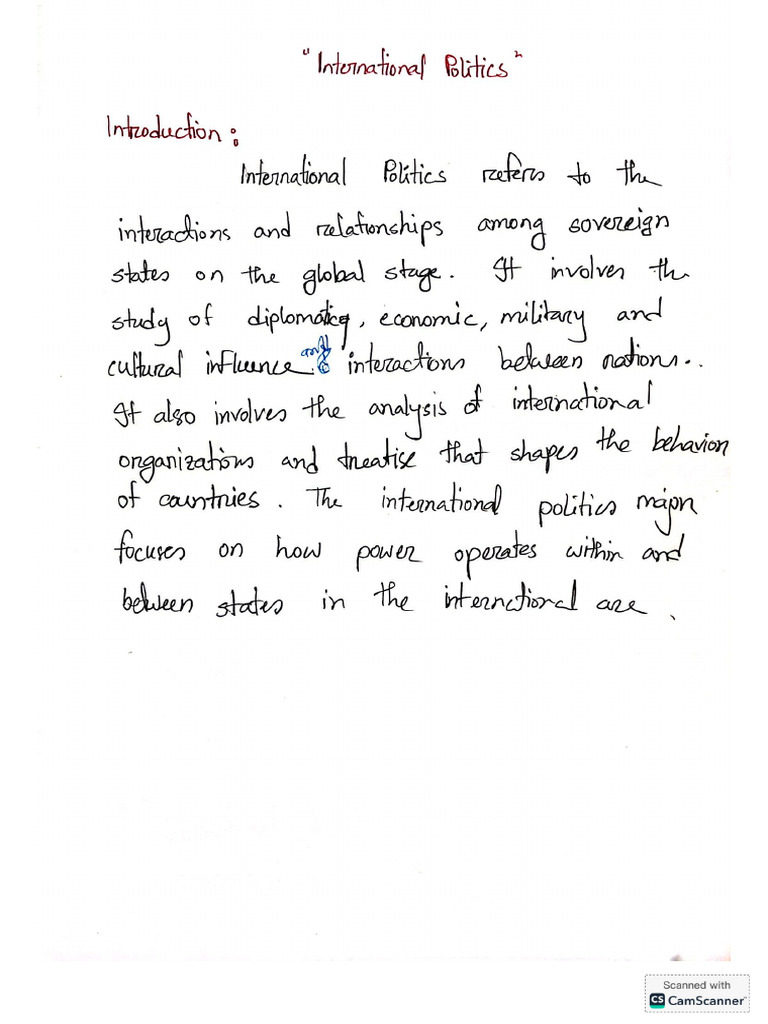 "International Politics"
Introduction:
International Politics refers to the
interactions and relationships among sovereign
states on the global stage. It involves the
study of diplomaticy, economic, military and
cultural influence. and interactions between nations..
It also involves the analysis of international
organizations and treatise that shapes the behavion
of countries. The international politics majon
focuses on how power operates within and
between states in the internctional are.
Scanned with
CS CamScanner